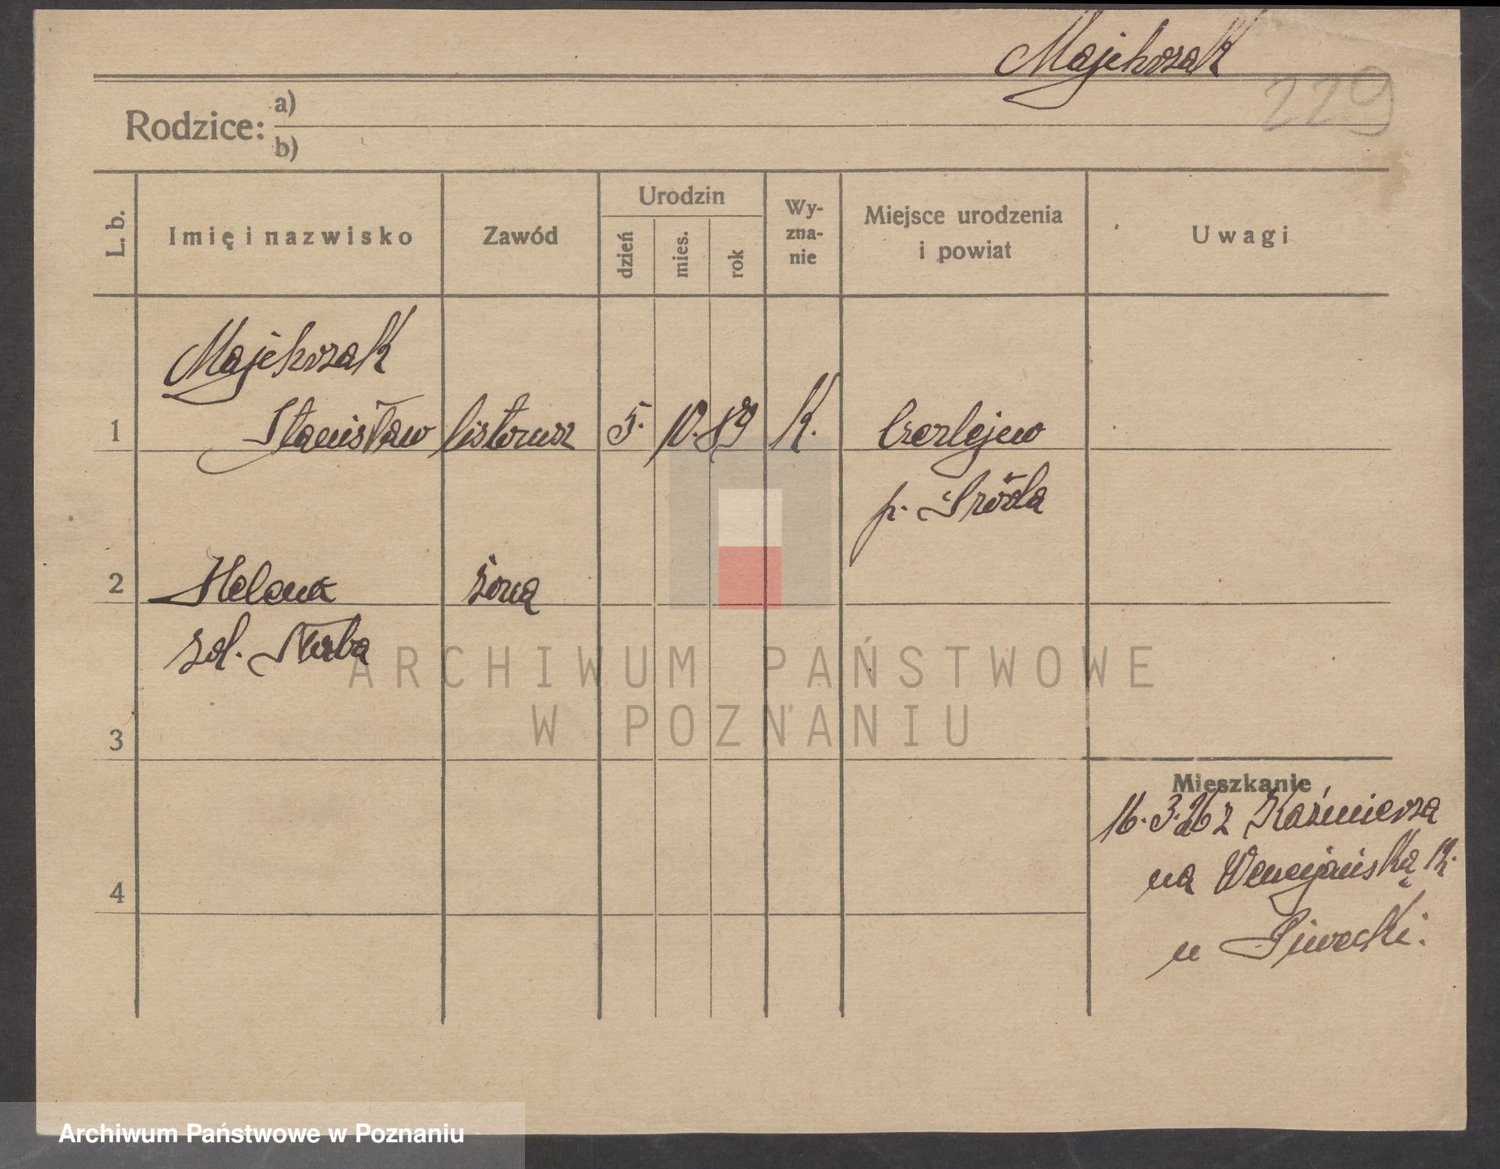 Majchrzak
229
Rodzice: a)
b)
L. b.
Imię i nazwisko
Zawód
Urodzin
dzień
mies.
rok
Wy-
zna-
nie
Miejsce urodzenia
i powiat
Uwagi
Majchrzak
1 Stanisław listonosz 5. 10. 89 K. Czerlejno
p. Środa
2 Helena żona
zd.
ARCHIWUM PAŃSTWOWE
W POZNANIU
3
Mieszkanie
16.3.26 z Kaźmierza
4 na Wenecjańską
u Siwecki.
Archiwum Państwowe w Poznaniu